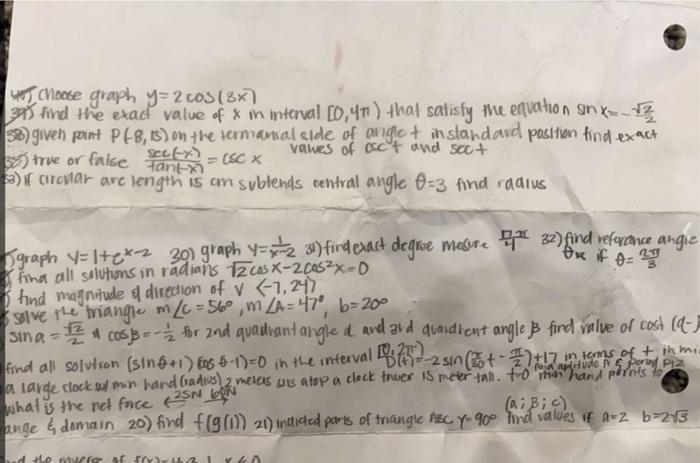 40) Choose graph y=2cos(3x)
39) find the exact value of x in interval [0,4π) that satisfy the equation sin x=-√2/2
38) given point P(-8,15) on the termanial side of angle t in standard position find exact values of csc t and sec t
35) true or false sec(-x)/tan(-x) = csc x
if circular arc length 15 cm subtends central angle θ=3 find radius
graph y=1+e^x-2 30) graph y=1/x-2 31) find exact degree mesure 7π/4 32) find referance angle θR if θ=2π/3
find all solutions in radians √2cosx-2cos²x=0
find magnitude & direction of V <-7,24>
solve the triangle m∠C=56°, m∠A=47°, b=20°
sin α=√2/2 & cosβ=-1/2 for 2nd quadrant angle α and 3rd quadrent angle β find value of cost (α-
find all solution (sinθ+1)(cosθ-1)=0 in the interval [0,2π) D(t)=-2sin(π/30 t-π/2)+17 in terms of t in mi
a large clock w/ min hand (radius) 2 meters sits atop a clock tower 15 meter tall. t=0 min hand points to
what is the net force 25N 60N
ange & domain 20) find f(g(1)) 21) parts of triangle ABC γ=90° (a; β; c) find values if a=2 b=2√3